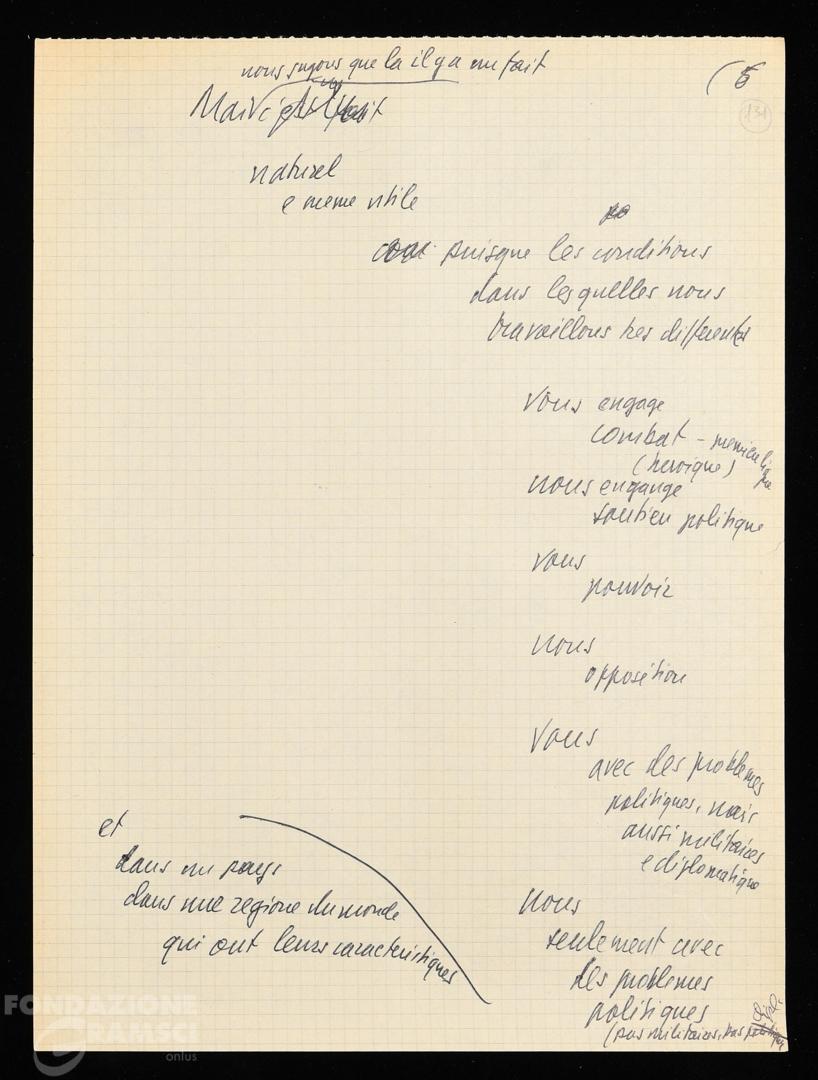 nous jugons que la il y a un fait
(6
131
Mais
naturel
e meme utile
puisque les conditions
dans lesquelles nous
travaillons tres differentes
Vous engage
combat -
(heroique)
nous engange
soutien politique
Vous
pouvoir
nous
opposition
Vous
avec des problemes
politiques, mais
aussi militaires
e diplomatique
et
dans un pays
dans une regione du monde
qui ont leurs caracteristiques
nous
seulement avec
des problemes
politiques
(pas militaires, pas
FONDAZIONE
GRAMSCI
onlus